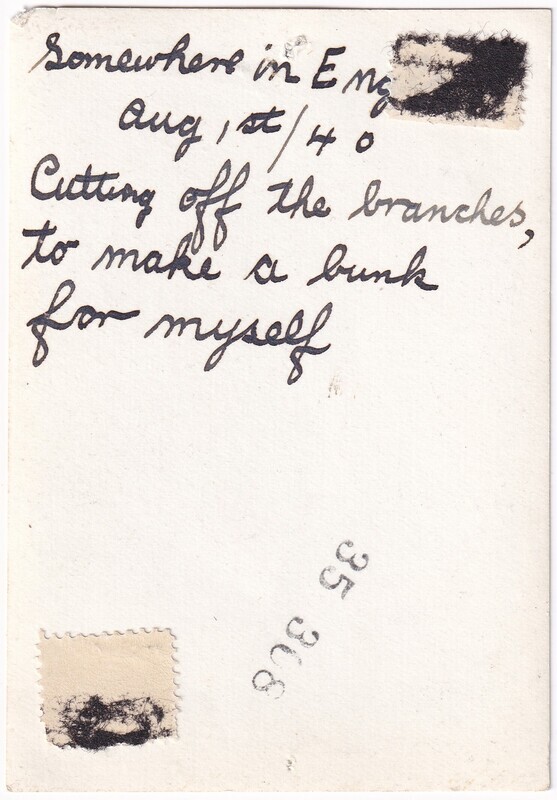 Somewhere in Eng
Aug, 1st/40
Cutting off the branches,
to make a bunk
for myself
35 308